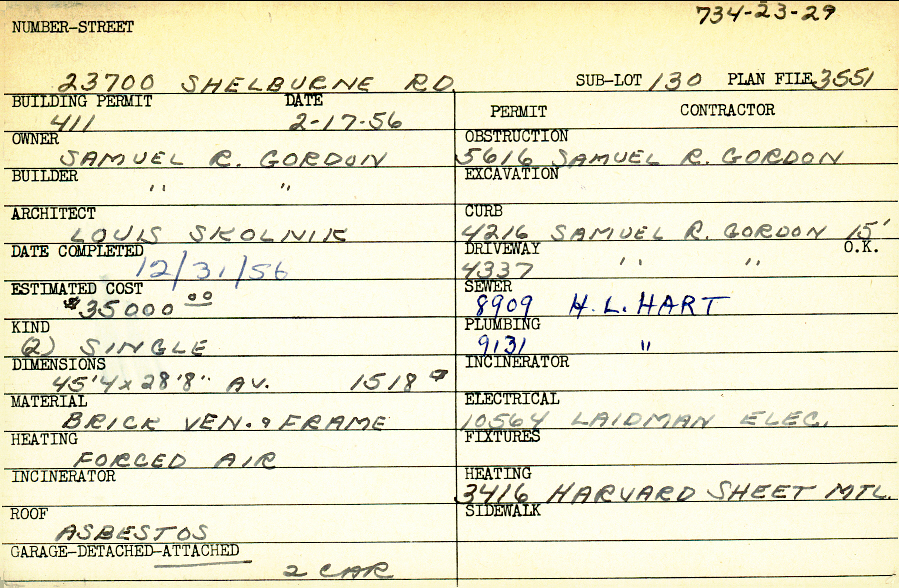 734-23-29
NUMBER-STREET
23700 SHELBURNE RD. SUB-LOT 130 PLAN FILE 3551
BUILDING PERMIT DATE PERMIT CONTRACTOR
411 2-17-56
OWNER OBSTRUCTION
SAMUEL R. GORDON 5616 SAMUEL R. GORDON
BUILDER EXCAVATION
" "
ARCHITECT CURB
LOUIS SKOLNIK 4216 SAMUEL R. GORDON 15'
DATE COMPLETED DRIVEWAY O.K.
12/31/56 4337 " "
ESTIMATED COST SEWER
$35000 00 8909 H.L. HART
KIND PLUMBING
(2) SINGLE 9131 "
DIMENSIONS INCINERATOR
45'4 x 28'8" AV. 1518
MATERIAL ELECTRICAL
BRICK VEN. & FRAME 10564 LAIDMAN ELEC.
HEATING FIXTURES
FORCED AIR
INCINERATOR HEATING
3416 HARVARD SHEET MTL.
ROOF SIDEWALK
ASBESTOS
GARAGE-DETACHED-ATTACHED
2 CAR